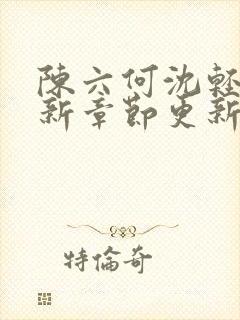 陳六何沈輕
新章節更新
特倫奇